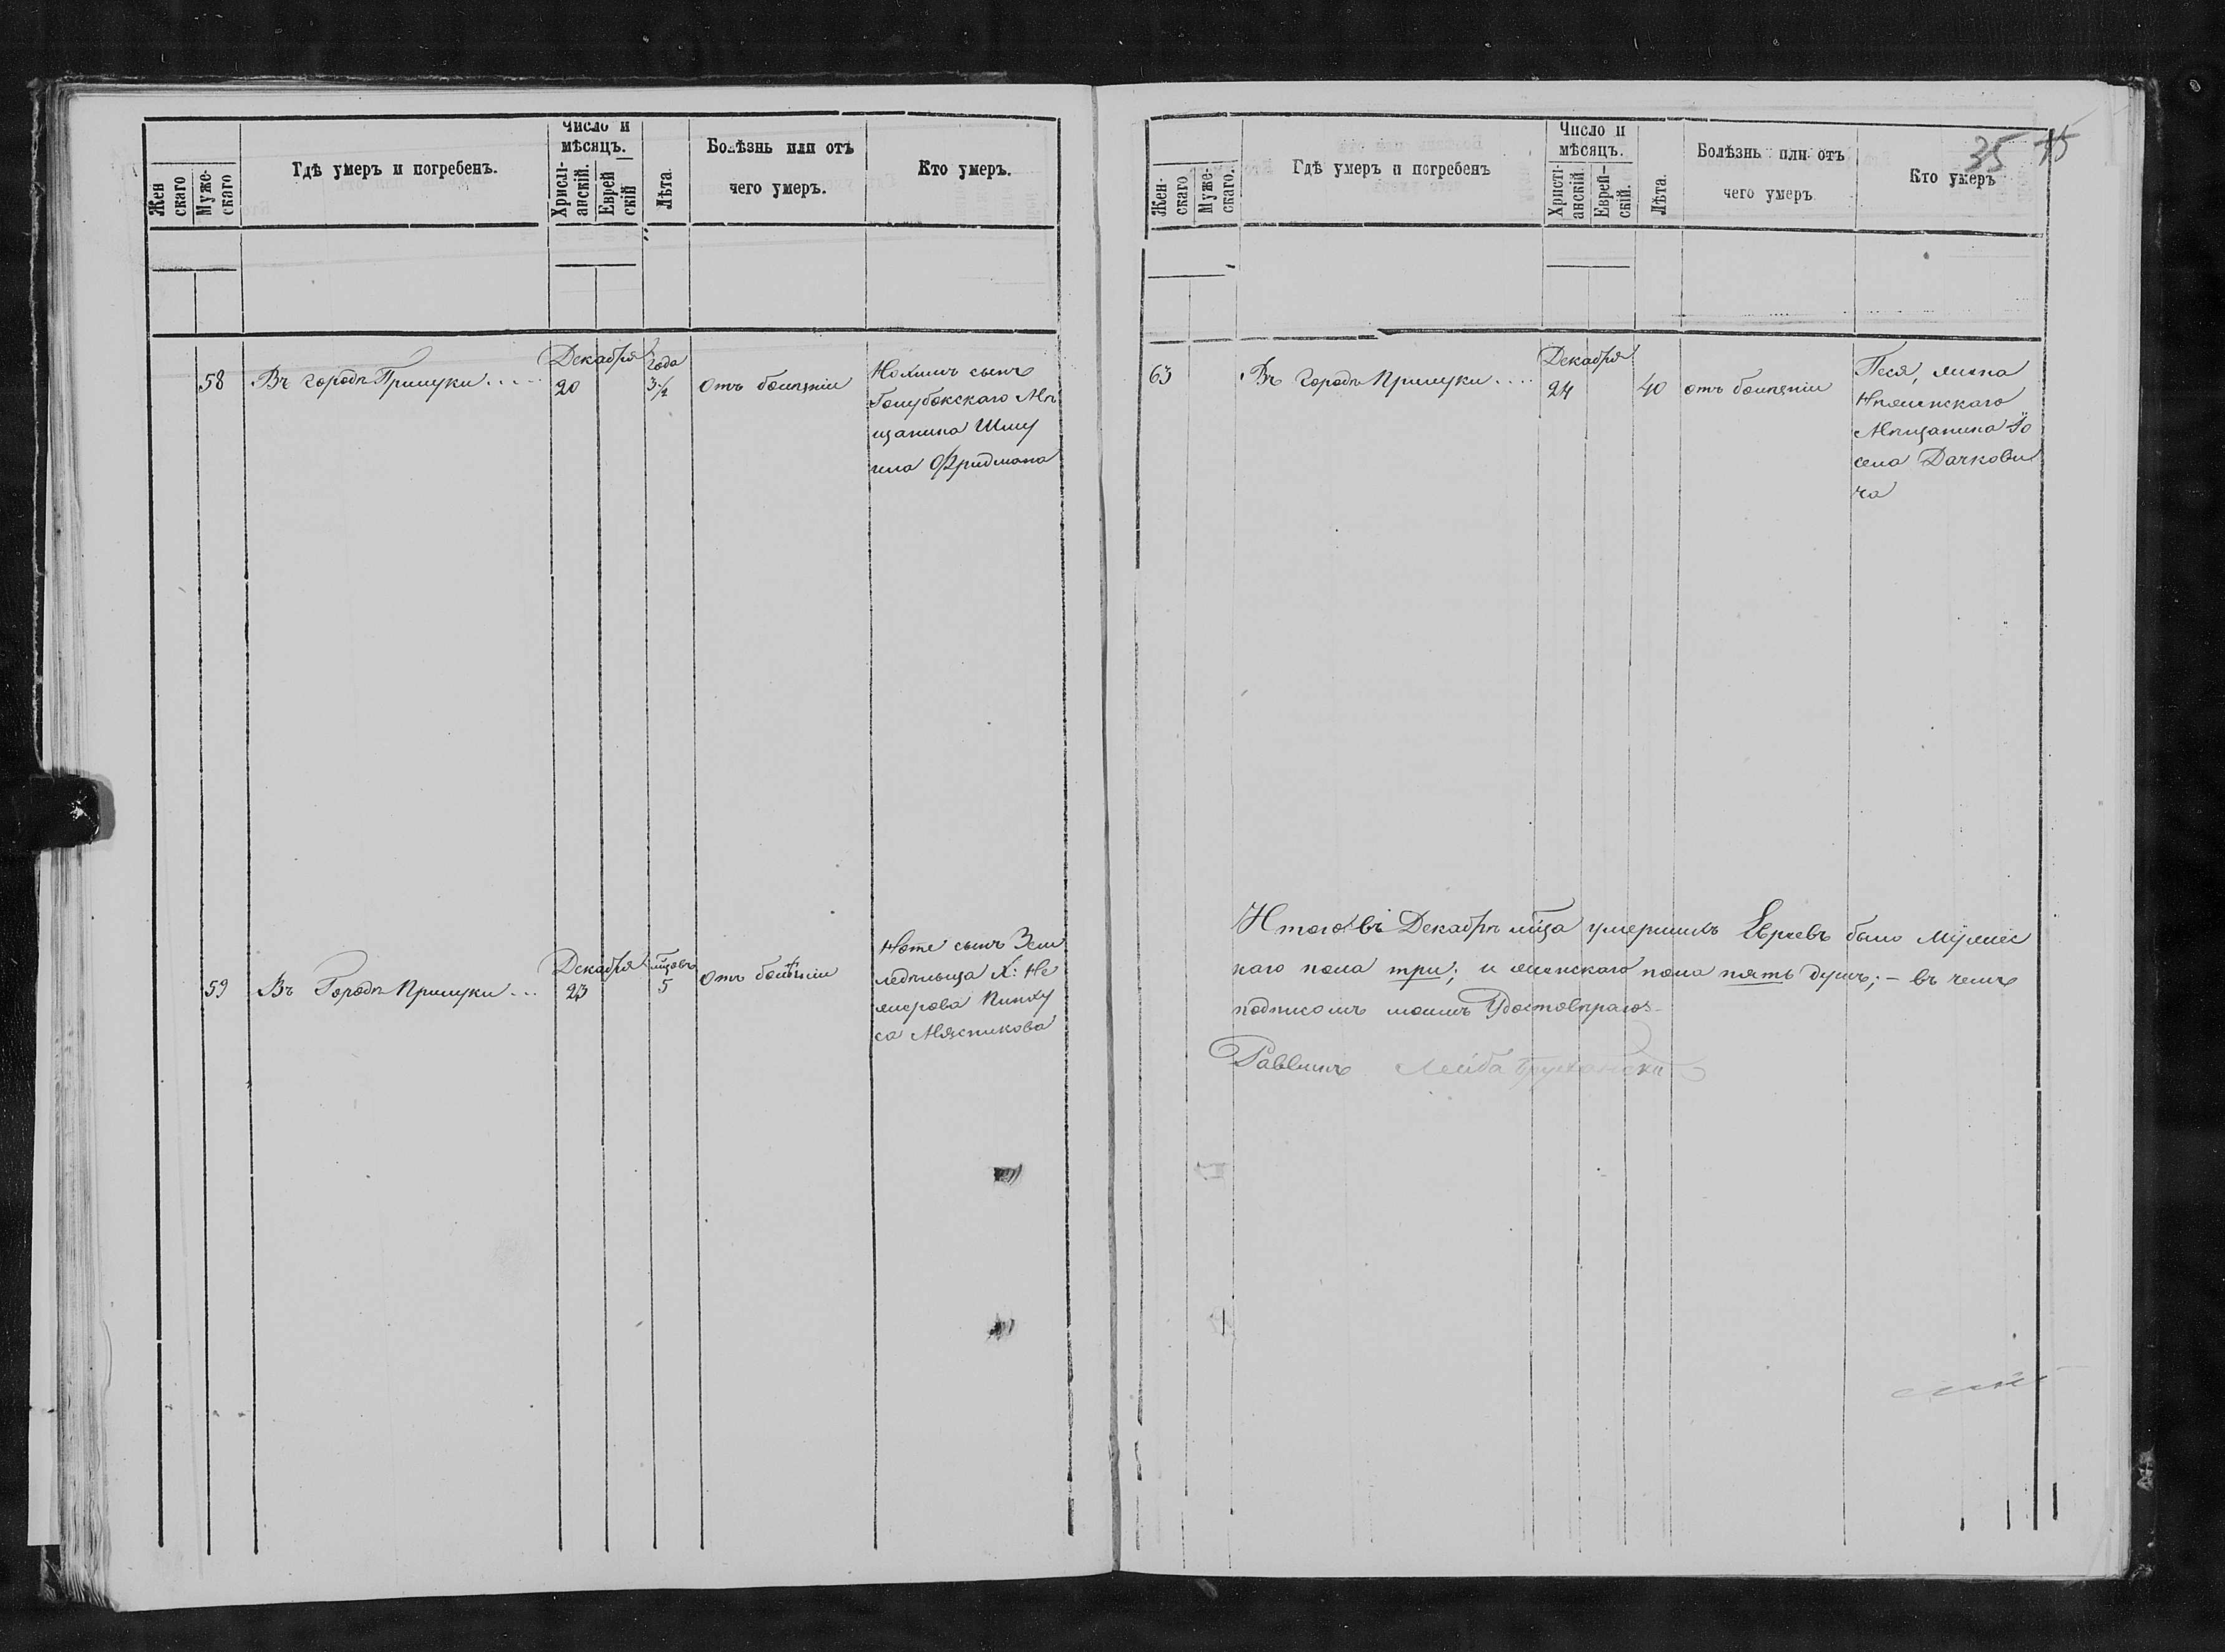 Жен
скаго
Муже-
скаго
Гдѣ умеръ и погребенъ.
Число и
мѣсяцъ.
Христі-
анскій.
Еврей
скій
Лѣта.
Болѣзнь или отъ
чего умеръ.
Кто умеръ.
58
Въ городѣ Прилуки....
Декабря
20
года
3 ½
отъ болѣзни
Нохимъ сынъ
Голубокскаго Мѣ
щанина Шму
ила Фридмана
59
Въ Городѣ Прилуки...
Декабря
23
мцовъ
5
отъ болѣзни
Ноте сынъ Зем
ледѣльца Х: Не
мерова Пинху
са Мясникова
35 75
Жен-
скаго
Муже-
скаго.
Гдѣ умеръ и погребенъ
Число и
мѣсяцъ.
Христі-
анскій.
Еврей-
скій.
Лѣта.
Болѣзнь или отъ
чего умеръ
Кто умеръ
63
Въ городѣ Прилуки....
Декабря
24
40
отъ болѣзни
Песя, жена
Нѣжинскаго
Мѣщанина Іо
села Дачкови
ча
Итого въ Декабрѣ мца умершихъ Евреевъ было мужес
каго пола три; и женскаго пола пять душъ; – въ чемъ
подписомъ моимъ Удостовѣряю
Раввинъ Лейба